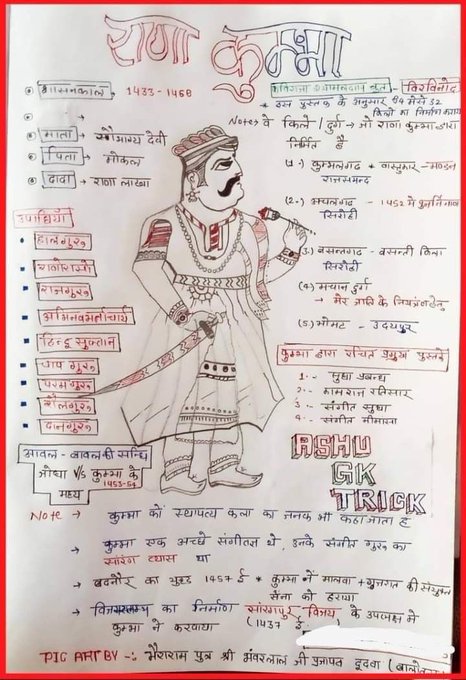 राणा कुम्भा
शासनकाल → 1433-1468
माता → सौभाग्य देवी
पिता → मोकल
दादा → राणा लाखा
कविराजा श्यामलदास कृत - विरविनोद
* इस पुस्तक के अनुसार 84 मेसे 32
किलो का निर्माण कराया
Note→ वे किले / दुर्ग → जो राणा कुम्भा द्वारा
निर्मित है
(1.) कुम्भलगढ * वास्तुकार - मण्डन
राजसमन्द
(2.) अचलगढ - 1452 मे पुनर्निर्माण
सिरोही
(3.) बसन्तगढ - बसन्ती किला
सिरोही
(4) मचान दुर्ग
→ मेर जाति के नियन्त्रण हेतु
(5.) भोमट - उदयपुर
उपाधियाँ
हालगुरु
राणेरासो
राजगुरु
अभिनवभर्ताचार्य
हिन्दू सुरताण
चाप गुरु
परमगुरु
शैलगुरु
दानगुरु
कुम्भा द्वारा रचित प्रमुख पुस्तके
1.- सुधा प्रबन्ध
2.- कामराज रतिसार
3.- संगीत सुधा
4.- संगीत मीमांसा
आवल - बावल की सन्धि
जोधा V/s कुम्भा के
1453-54
मध्य
ASHU
GK
TRICK
Note → कुम्भा को स्थापत्य कला का जनक भी कहा जाता है
→ कुम्भा एक अच्छे संगीतज्ञ थे, उनके संगीत गुरु का
सारंग व्यास था
→ बदनौर का युद्ध 1457 ई * कुम्भा ने मालवा + गुजरात की संयुक्त
सेना को हराया
→ विजयस्तम्भ का निर्माण सारंगपुर विजय के उपलक्ष मे
कुम्भा ने करवाया (1437 ई.)
PIC ART BY -: भैराराम पुत्र श्री भंवरलाल जी प्रजापत दूदवा